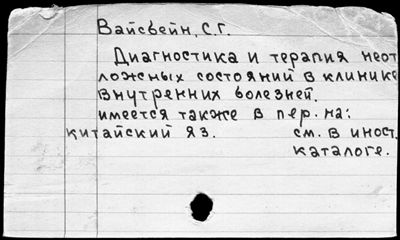 Вайсвейн, С.Г.
Диагностика и терапия неот
ложных состояний в клинике
внутренних болезней.
имеется также в пер. на:
китайский яз. см. в иност.
каталоге.